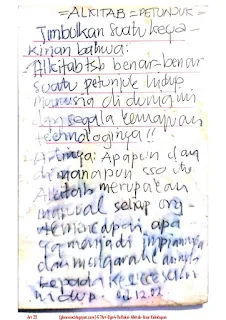 =ALKITAB=PETUNJUK=
Timbulkan suatu keya-
kinan bahwa:
-Alkitab tsb benar-benar
suatu petunjuk hidup
manusia di dunia ini
dan segala kemajuan
teknologinya!!
-Artinya: Apapun dan
dimanapun sso itu
Alkitab merupakan
manual setiap org
mencapai apa
yg menjadi impiannya
dan mengarahkannya
kepada
hidup. 02.12.02